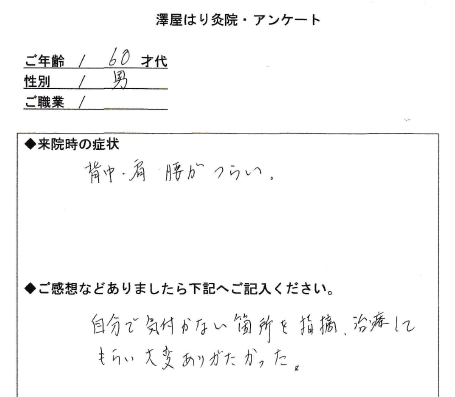 澤屋はり灸院・アンケート
ご年齢 / 60 才代
性別 / 男
ご職業 /
◆来院時の症状
背中・肩 腰がつらい。
◆ご感想などありましたら下記へご記入ください。
自分で気付かない箇所を指摘、治療して
もらい大変ありがたかった。